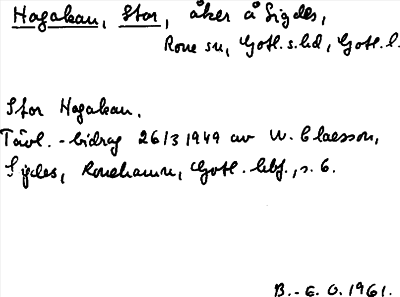 Hagakau, Stor, åker å Sigdes,
Rone sn, Gotl. s. hd, Gotl. l.
Stor Hagakau.
Tävl.-bidrag 26/3 1949 av W. Claesson,
Sigdes, Ronehamn, Gotl. hbf., s. 6.
B.-E. O. 1961.